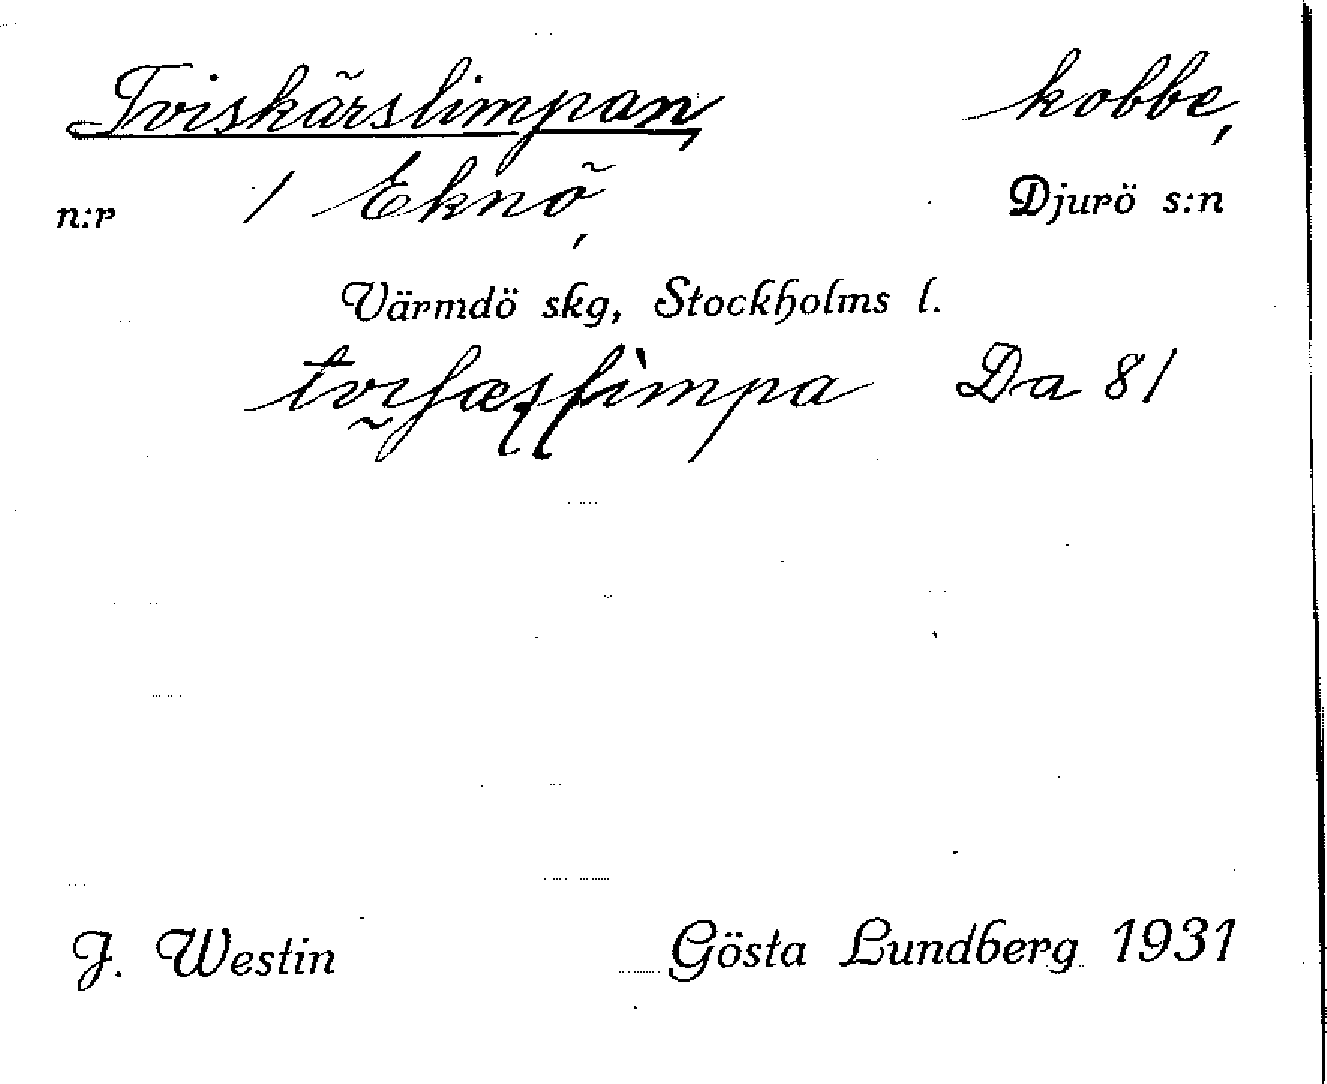 Tviskärslimpan, kobbe,
n:r 1 Eknö, Djurö s:n
Värmdö skg, Stockholms l.
Da 81
J. Westin Gösta Lundberg 1931